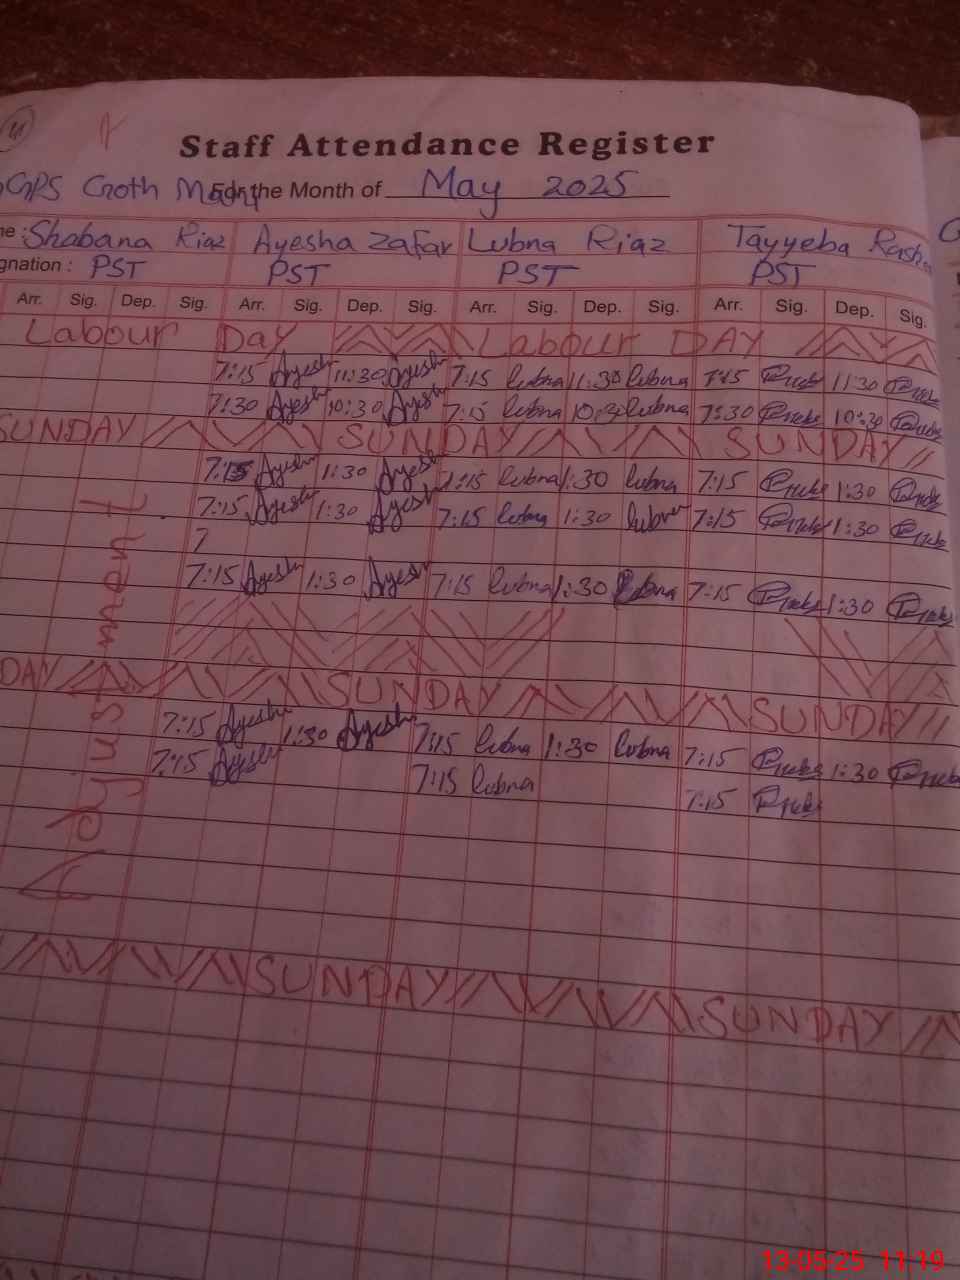 Staff Attendance Register
GPS Goth For the Month of May 2025
ne : Shabana Riaz Ayesha Zafar Lubna Riaz Tayyeba
gnation : PST PST PST PST
Arr. Sig. Dep. Sig. Arr. Sig. Dep. Sig. Arr. Sig. Dep. Sig. Arr. Sig. Dep. Sig.
Labour Day Labour DAY
7:15 Ayesha 11:30 Ayesha 7:15 lubna 11:30 lubna 7:15 11:30
7:30 Ayesha 10:30 Ayesha 7:15 lubna 10:30 lubna 7:30 10:30
SUNDAY SUNDAY SUNDAY
7:15 Ayesha 1:30 Ayesha 7:15 lubna 1:30 lubna 7:15 1:30
7:15 Ayesha 1:30 Ayesha 7:15 lubna 1:30 lubna 7:15 1:30
7
7:15 Ayesha 1:30 Ayesha 7:15 lubna 1:30 lubna 7:15 1:30
DAY SUNDAY SUNDAY
7:15 Ayesha 1:30 Ayesha 7:15 lubna 1:30 lubna 7:15 1:30
7:15 Ayesha 7:15 lubna 7:15
Adjustment
SUNDAY SUNDAY
13-05-25 11:19